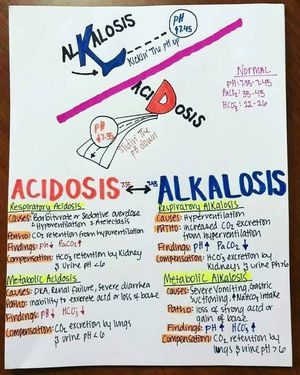 ALKALOSIS
Kickin' The pH up
pH
↑7.45
ACIDOSIS
pH
Slidin' The
pH down
NORMAL
pH: 7.35-7.45
PaCO₂: 35-45
HCO₃: 22-26
ACIDOSIS 7.35 ↔ 7.45 ALKALOSIS
Respiratory Acidosis
Causes: Barbiturate or Sedative overdose
↑ Hypoventilation & Atelectasis
Patho: CO₂ retention from hypoventilation
Findings: pH↓ PaCO₂↑
Compensation: HCO₃ retention by Kidney
& urine pH <6
Metabolic Acidosis
Causes: DKA, Renal failure, Severe diarrhea
Patho: inability to excrete acid or loss of base
Findings: pH↓ HCO₃↓
Compensation: CO₂ excretion by lungs
& urine pH <6
Respiratory Alkalosis
Causes: Hyperventilation
Patho: increased CO₂ excretion
from hyperventilation
Findings: pH↑ PaCO₂↓
Compensation: HCO₃ excretion by
Kidneys & urine pH >6
Metabolic Alkalosis
Causes: Severe Vomiting, Gastric
Suctioning, ↑NaHCO₃ intake
Patho: loss of strong acid or
gain of base
Findings: pH↑ HCO₃↑
Compensation: CO₂ retention by
lungs & urine pH >6